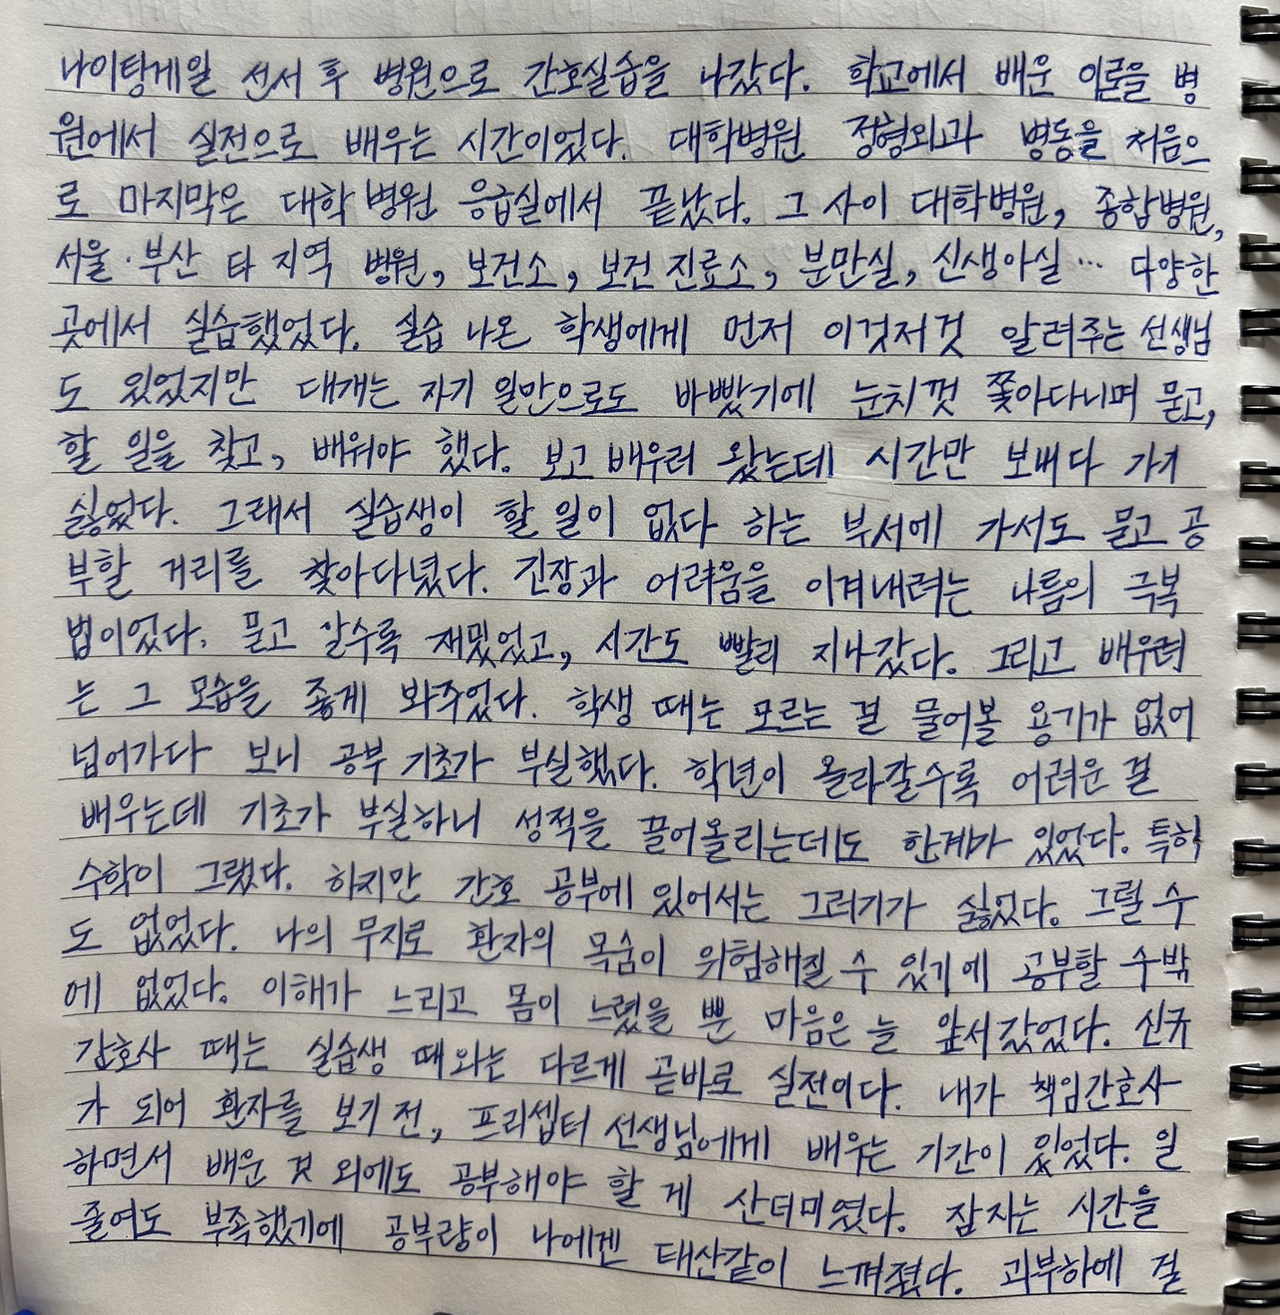 나이팅게일 선서 후 병원으로 간호실습을 나갔다. 학교에서 배운 이론을 병
원에서 실전으로 배우는 시간이었다. 대학병원 정형외과 병동을 처음으
로 마지막은 대학병원 응급실에서 끝났다. 그 사이 대학병원, 종합병원,
서울·부산 타 지역 병원, 보건소, 보건 진료소, 분만실, 신생아실… 다양한
곳에서 실습했었다. 실습 나온 학생에게 먼저 이것저것 알려주는 선생님
도 있었지만 대개는 자기 일만으로도 바빴기에 눈치껏 쫓아다니며 묻고,
할 일을 찾고, 배워야 했다. 보고 배우러 왔는데 시간만 보내다 가기
싫었다. 그래서 실습생이 할 일이 없다 하는 부서에 가서도 묻고 공
부할 거리를 찾아다녔다. 긴장과 어려움을 이겨내려는 나름의 극복
법이었다. 묻고 알수록 재밌었고, 시간도 빨리 지나갔다. 그리고 배우려
는 그 모습을 좋게 봐주었다. 학생 때는 모르는 걸 물어볼 용기가 없어
넘어가다 보니 공부 기초가 부실했다. 학년이 올라갈수록 어려운 걸
배우는데 기초가 부실하니 성적을 끌어올리는데도 한계가 있었다. 특히
수학이 그랬다. 하지만 간호 공부에 있어서는 그러기가 싫었다. 그럴 수
도 없었다. 나의 무지로 환자의 목숨이 위험해질 수 있기에 공부할 수밖
에 없었다. 이해가 느리고 몸이 느렸을 뿐 마음은 늘 앞서갔었다. 신규
간호사 때는 실습생 때와는 다르게 곧바로 실전이다. 내가 책임간호사
가 되어 환자를 보기 전, 프리셉터 선생님에게 배우는 기간이 있었다. 일
하면서 배운 것 외에도 공부해야 할 게 산더미였다. 잠자는 시간을
줄여도 부족했기에 공부량이 나에겐 태산같이 느껴졌다. 과부하에 걸